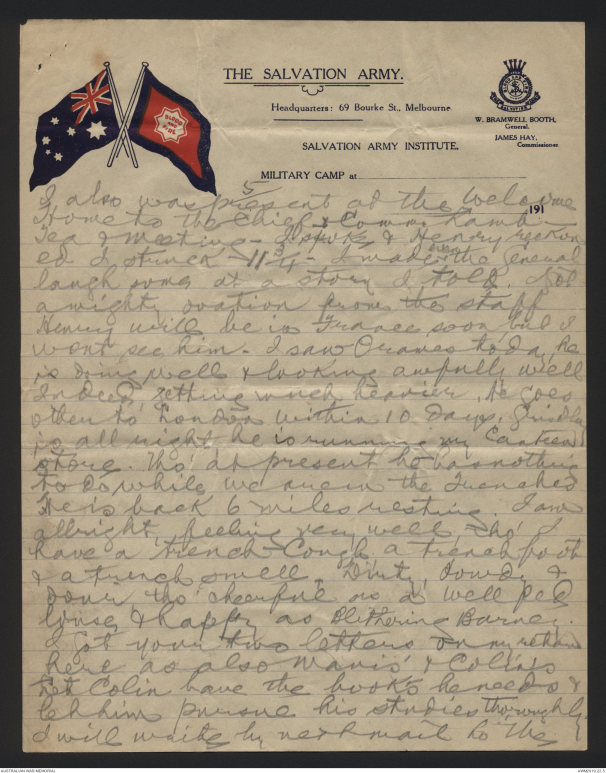 THE SALVATION ARMY.
Headquarters: 69 Bourke St., Melbourne.
W. BRAMWELL BOOTH,
General.
JAMES HAY,
Commissioner.
BLOOD
AND
FIRE
SALVATION ARMY INSTITUTE.
MILITARY CAMP at
191
5
I also was present at the Welcome
Home to the Chief & Comm. Lamb
Tea & Meeting - I spoke & Henry reckon
ed I struck 11¾ - I made even the General
laugh some at a story I told. Got
a mighty ovation from the staff
Henry will be in France soon but I
wont see him - I saw Graves today, he
is doing well & looking awfully well
Indeed, getting much heavier, he goes
to London within 10 days,
is all right he is running my Canteen
store. Tho' at present he has nothing
to do while we are in the Trenches
He is back 6 miles resting. I am
allright, feeling very well, tho' I
have a trench Cough a trench foot
& a trench smell, Dirty, Dowdy &
Dour tho' cheerful as a well fed
& happy as Blithering Barney.
I got your two letters on my return
here as also Mavis' & Colin's
Let Colin have the books he needs &
let him pursue his studies thoroughly
I will write by next mail to the
AUSTRALIAN WAR MEMORIAL